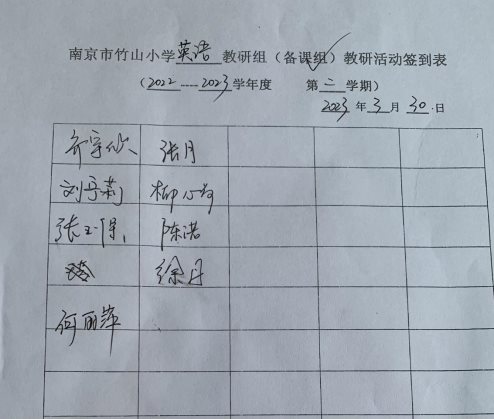 南京市竹山小学英语教研组（备课组）教研活动签到表
（2022----2023学年度 第二学期）
2023年3月30日
张月
刘亭莉
陈洁
徐丹
何丽萍